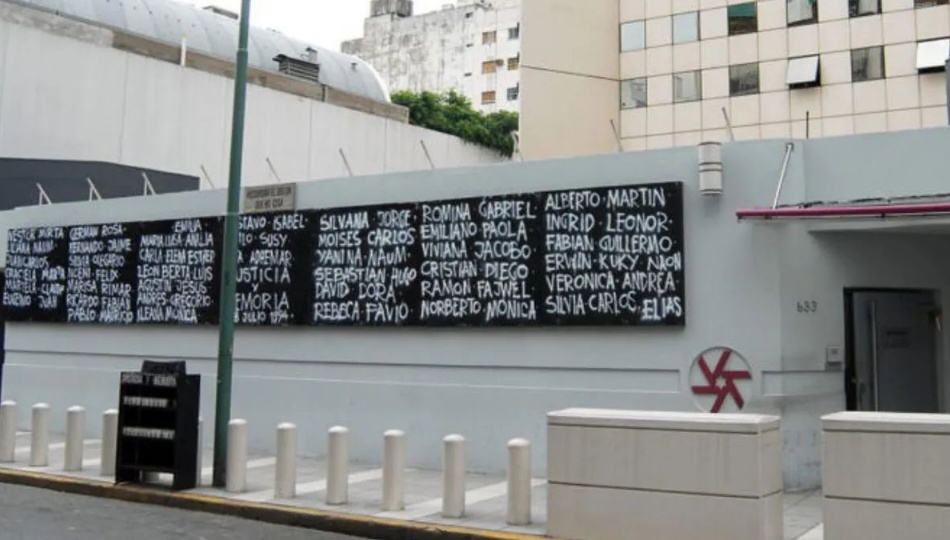 RECORDAR EL DOLOR
QUE NO CESA
NESTOR MIRTA
GERMAN ROSA
FERNANDO JAIME
SILVIO OLEGARIO
INGENI FELIX
MARISA RIMAR
RICARDO FABIAN
PABLO MAURICIO
EUGENIO JUAN
EMILIA
MARIA LUISA ANALIA
CARLA ELENA ESTHER
LEON BERTA LUIS
AGUSTIN JESUS
ANDRES GREGORIO
ILEANA MONICA
GUSTAVO ISABEL
SUSY
ADHEMAR
JUSTICIA
Y
MEMORIA
JULIO 1994
SILVANA · JORGE
MOISES CARLOS
YANINA · NAUM
SEBASTIAN · HUGO
DAVID DORA
REBECA · FAVIO
ROMINA GABRIEL
EMILIANO PAOLA
VIVIANA JACOBO
CRISTIAN DIEGO
RAMON FAJWEL
NORBERTO · MONICA
ALBERTO · MARTIN
INGRID · LEONOR
FABIAN GUILLERMO
ERWIN · KUKY NAON
VERONICA · ANDREA
SILVIA · CARLOS · ELIAS
633